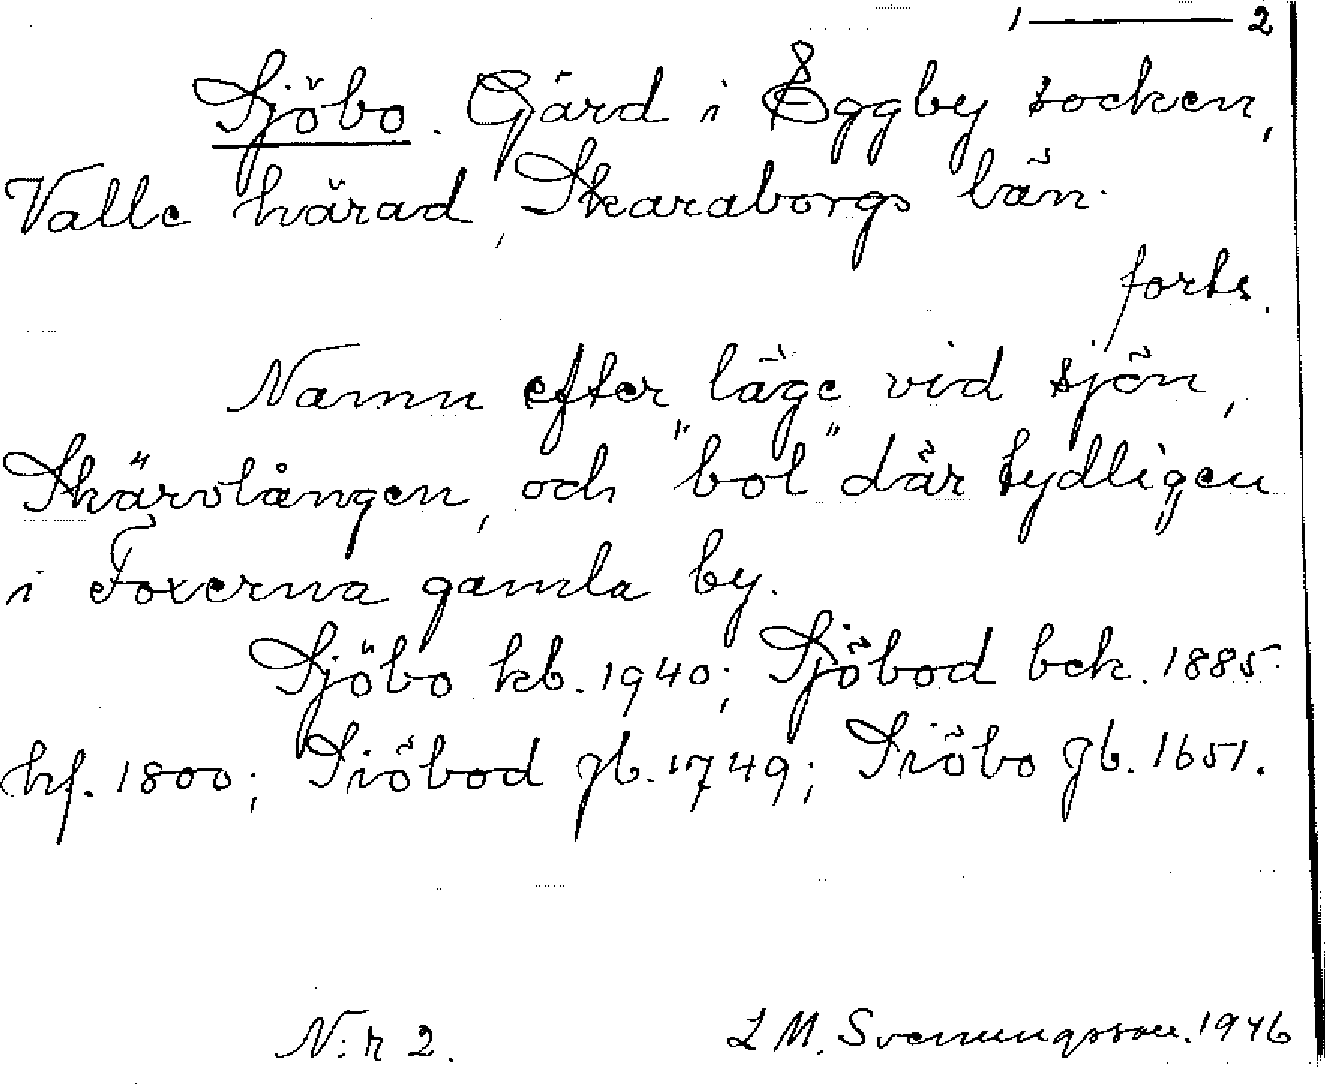 1 — 2
Sjöbo. Gård i Eggby socken,
Valle härad, Skaraborgs län.
forts.
Namn efter läge vid sjön,
Skärvlången, och "bol" där tydligen
i Foxerna gamla by.
Sjöbo kb. 1940; Sjöbod bck. 1885.
hf. 1800; Siöbod jb. 1749; Siöbo jb. 1651.
N:r 2. L M. Svenungsson. 1946